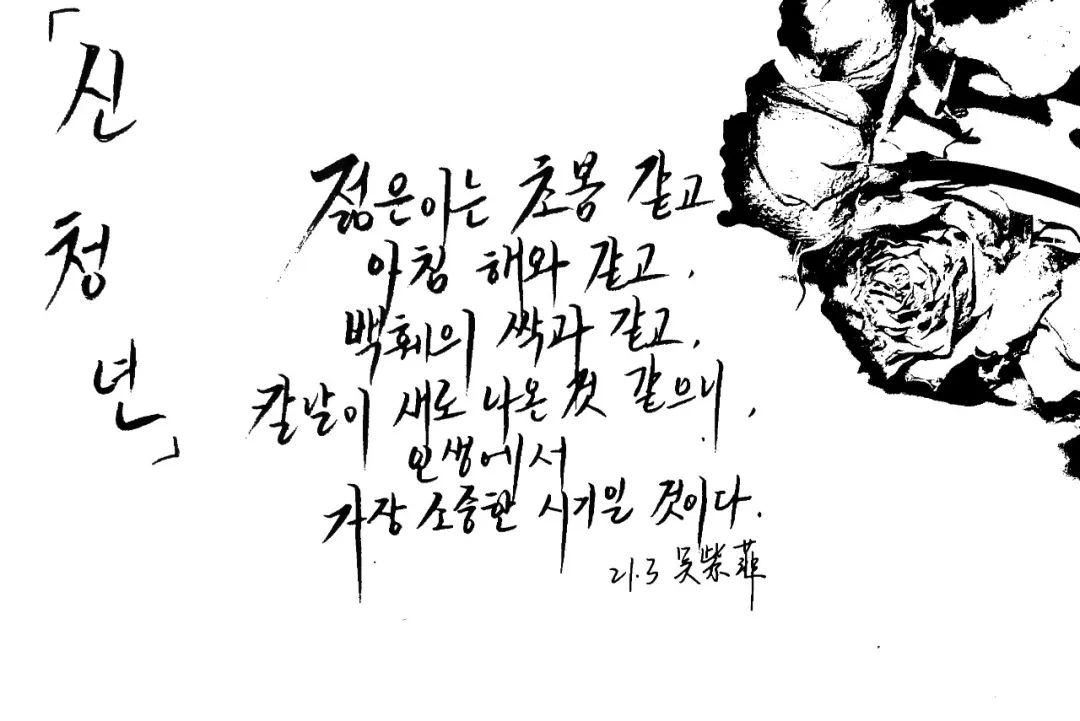 「신청년」
젊은이는 초봄 같고
아침 해와 같고,
백훼의 싹과 같고,
칼날이 새로 나온 것 같으니,
인생에서
가장 소중한 시기일 것이다.
21.3 吴紫菲